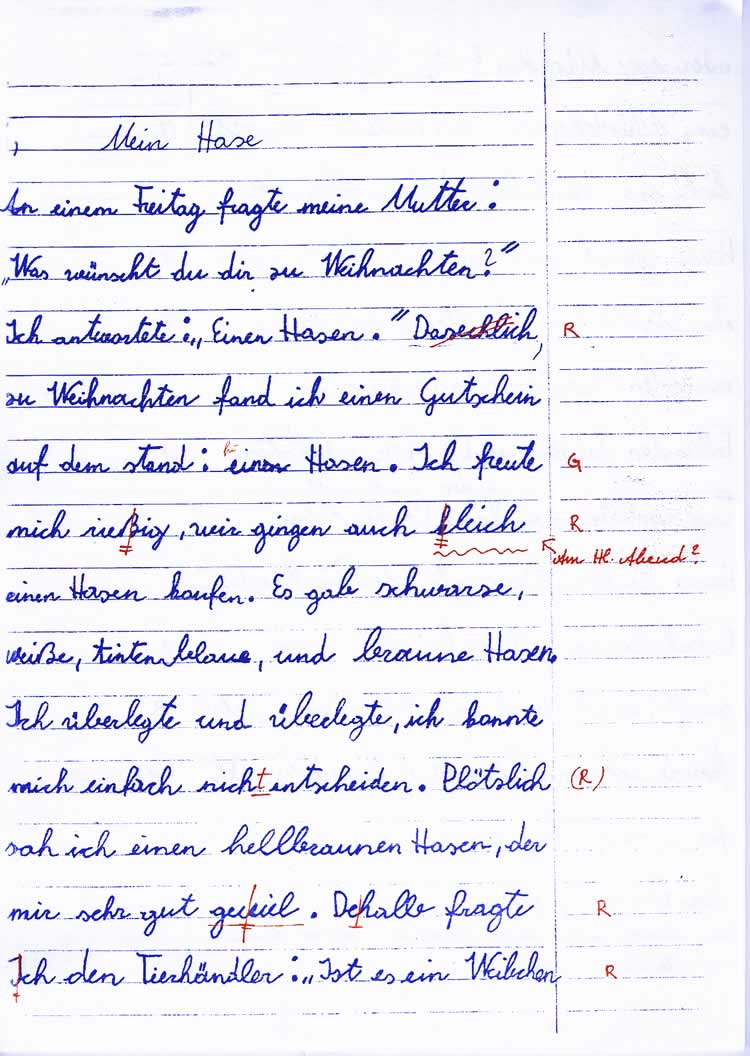 Mein Hase
An einem Freitag fragte meine Mutter:
„Was wünscht du dir zu Weihnachten?"
Ich antwortete: „Einen Hasen."
zu Weihnachten fand ich einen Gutschein R
auf dem stand: einen Hasen. Ich freute G
mich rießig, wir gingen auch kleich R
Am Hl. Abend?
einen Hasen kaufen. Es gab schwarze,
weiße, tintenblaue, und braune Hasen.
Ich überlegte und überlegte, ich konnte
mich einfach nicht entscheiden. Plötzlich (R)
sah ich einen hellbraunen Hasen, der
mir sehr gut gefiel. Deshalb fragte R
Ich den Tierhändler: „Ist es ein Weibchen R